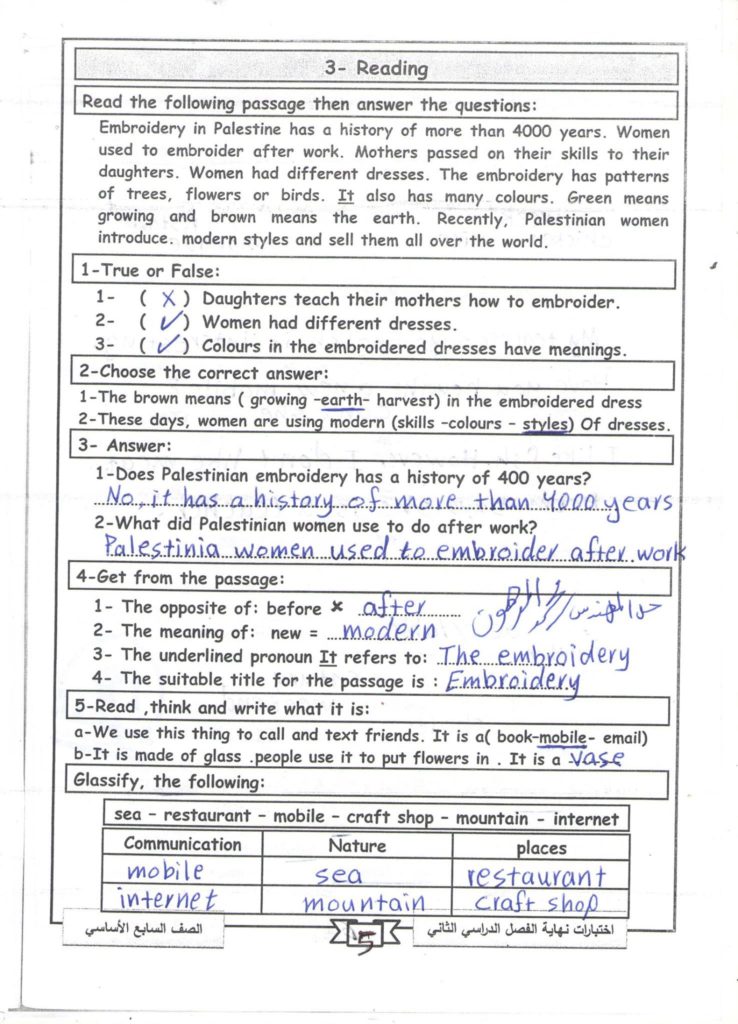 3- Reading
Read the following passage then answer the questions:
Embroidery in Palestine has a history of more than 4000 years. Women
used to embroider after work. Mothers passed on their skills to their
daughters. Women had different dresses. The embroidery has patterns
of trees, flowers or birds. It also has many colours. Green means
growing and brown means the earth. Recently, Palestinian women
introduce. modern styles and sell them all over the world.
1-True or False:
1- ( X ) Daughters teach their mothers how to embroider.
2- ( ✓ ) Women had different dresses.
3- ( ✓ ) Colours in the embroidered dresses have meanings.
2-Choose the correct answer:
1-The brown means ( growing -earth- harvest) in the embroidered dress
2-These days, women are using modern (skills -colours - styles) Of dresses.
3- Answer:
1-Does Palestinian embroidery has a history of 400 years?
No, it has a history of more than 4000 years
2-What did Palestinian women use to do after work?
Palestinia women used to embroider after work
4-Get from the passage:
1- The opposite of: before × after
2- The meaning of: new = modern
3- The underlined pronoun It refers to: The embroidery
4- The suitable title for the passage is : Embroidery
5-Read ,think and write what it is:
a-We use this thing to call and text friends. It is a( book-mobile- email)
b-It is made of glass .people use it to put flowers in . It is a vase
Glassify, the following:
sea - restaurant - mobile - craft shop - mountain - internet
Communication Nature places
mobile sea restaurant
internet mountain craft shop
اختبارات نهاية الفصل الدراسي الثاني 5 الصف السابع الأساسي